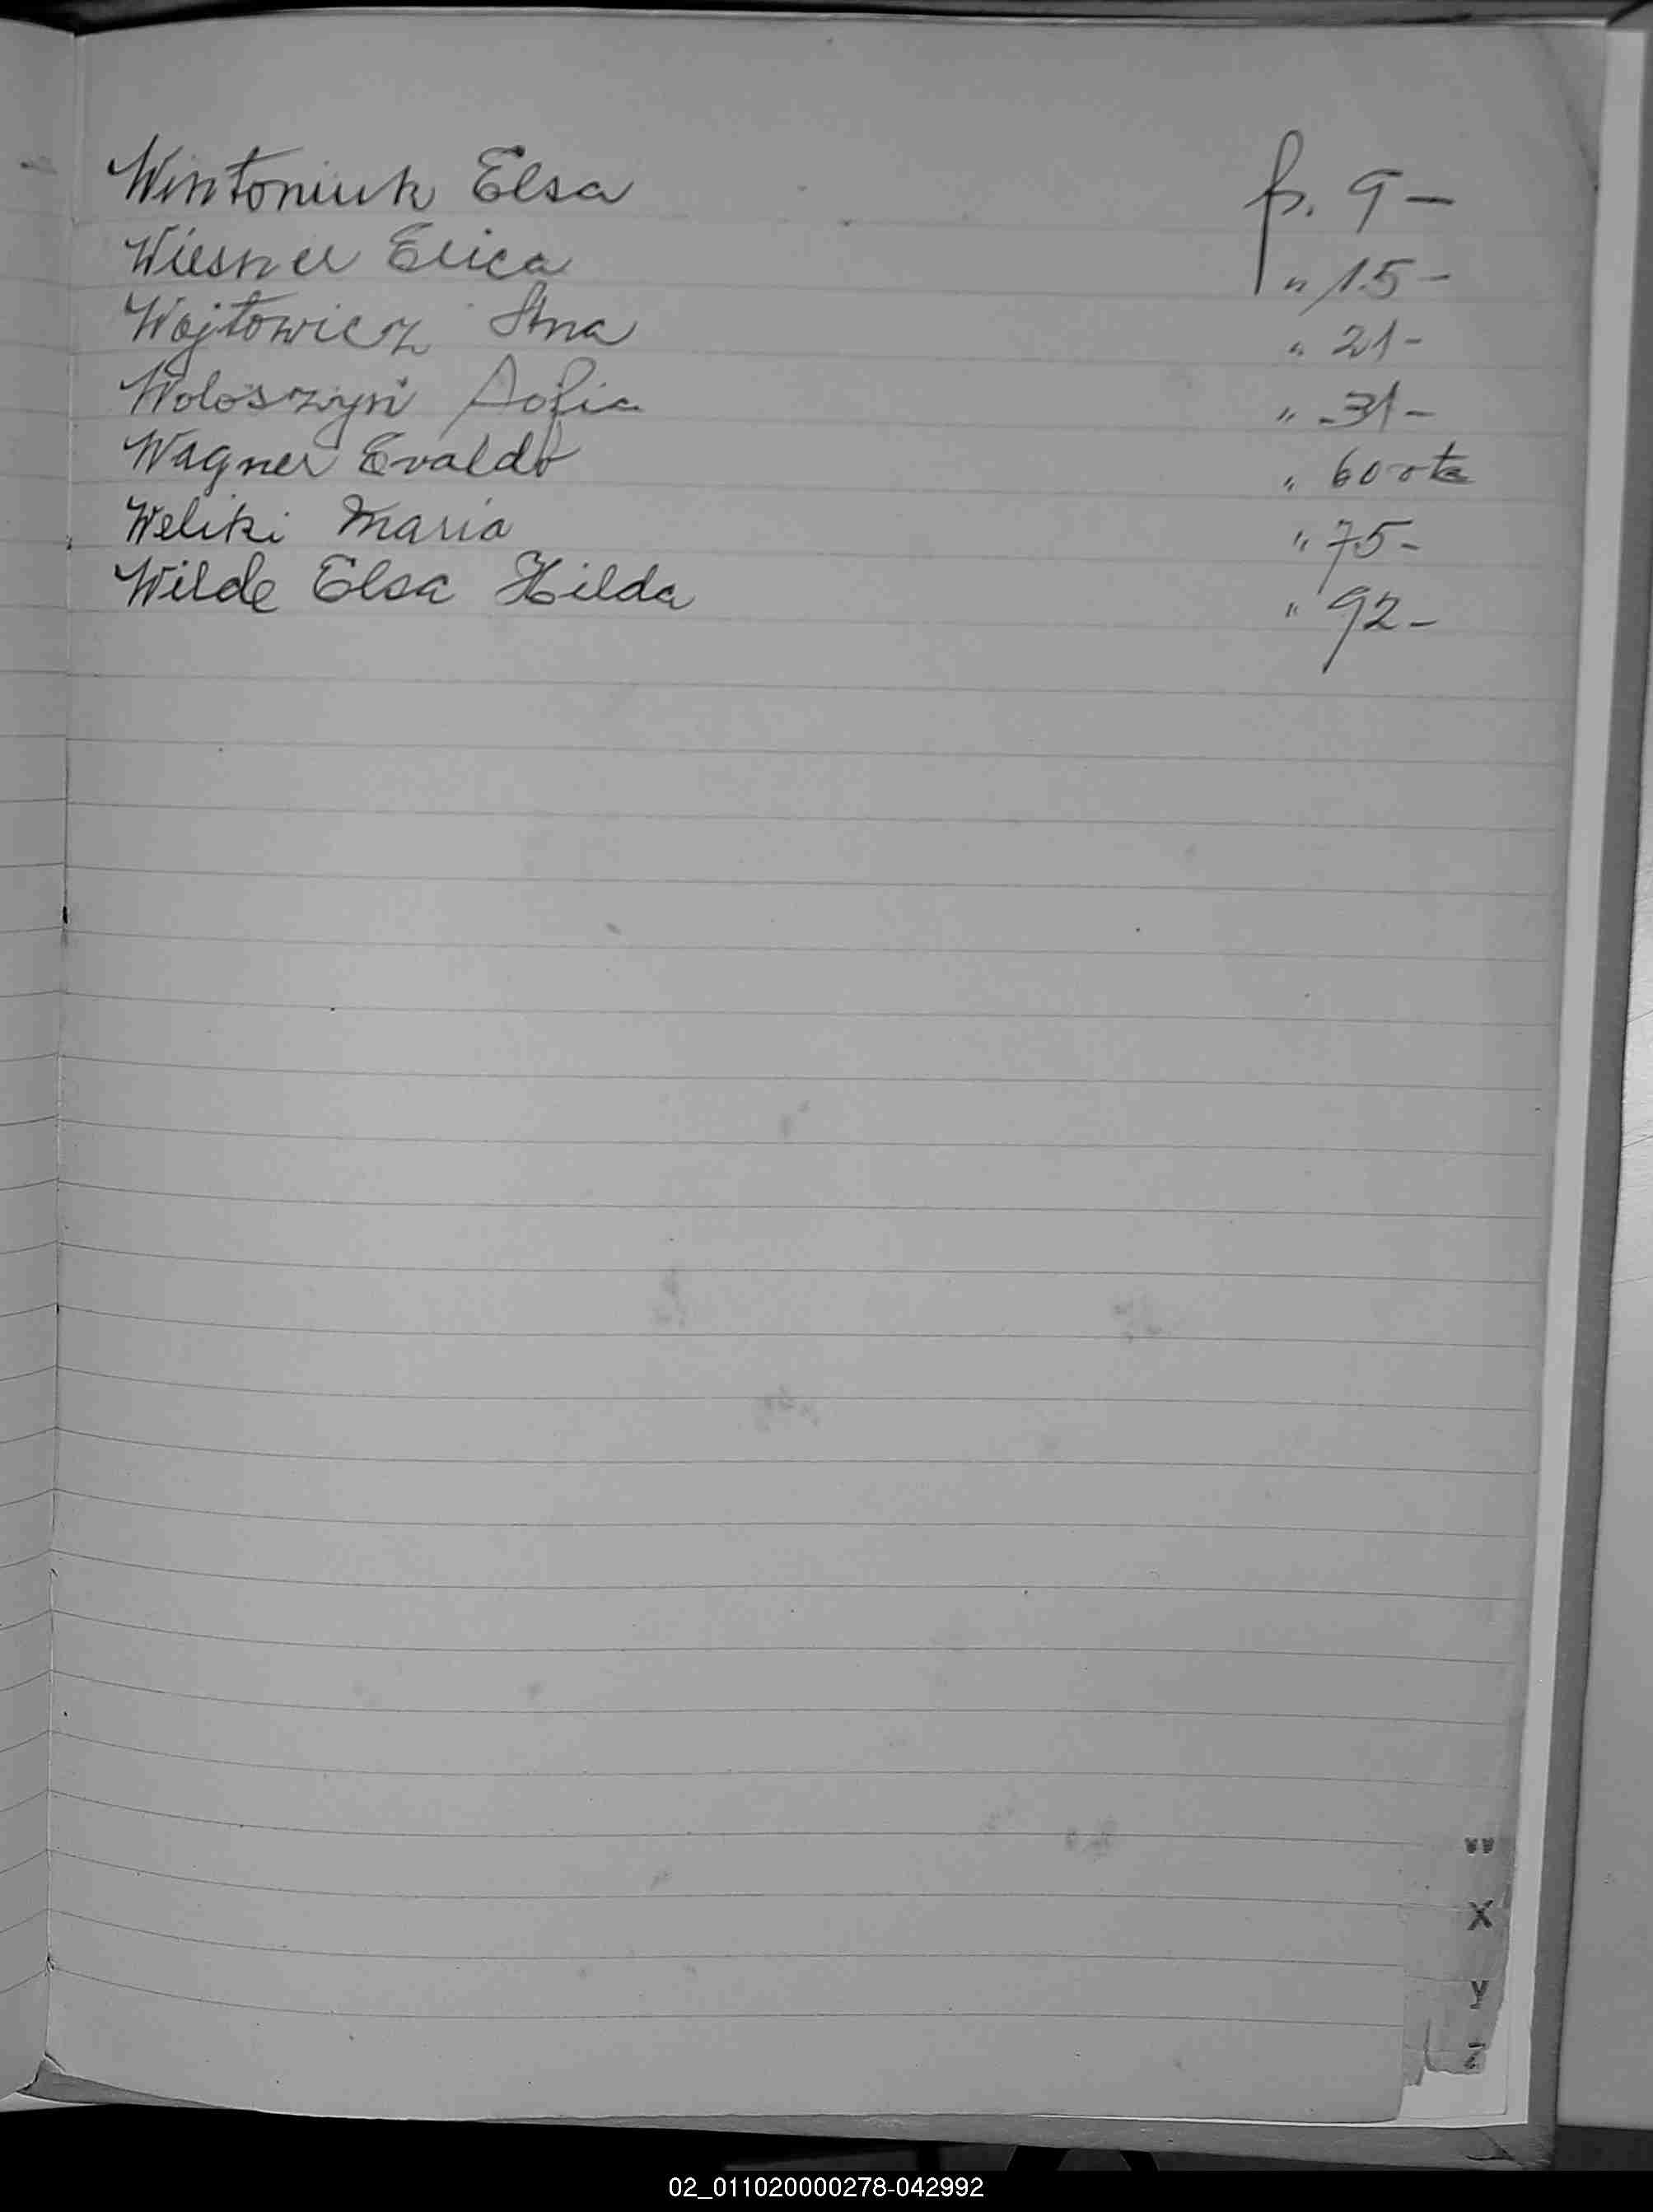 Wintoniuk Elsa f. 9 -
Wiesner Erica " 15 -
Wojtowicz Ana " 21 -
Woloszyn Sofia " 31 -
Wagner Evaldo " 60
Weliki Maria " 75 -
Wilde Elsa Hilda " 92 -
W
X
Y
Z
02_011020000278-042992